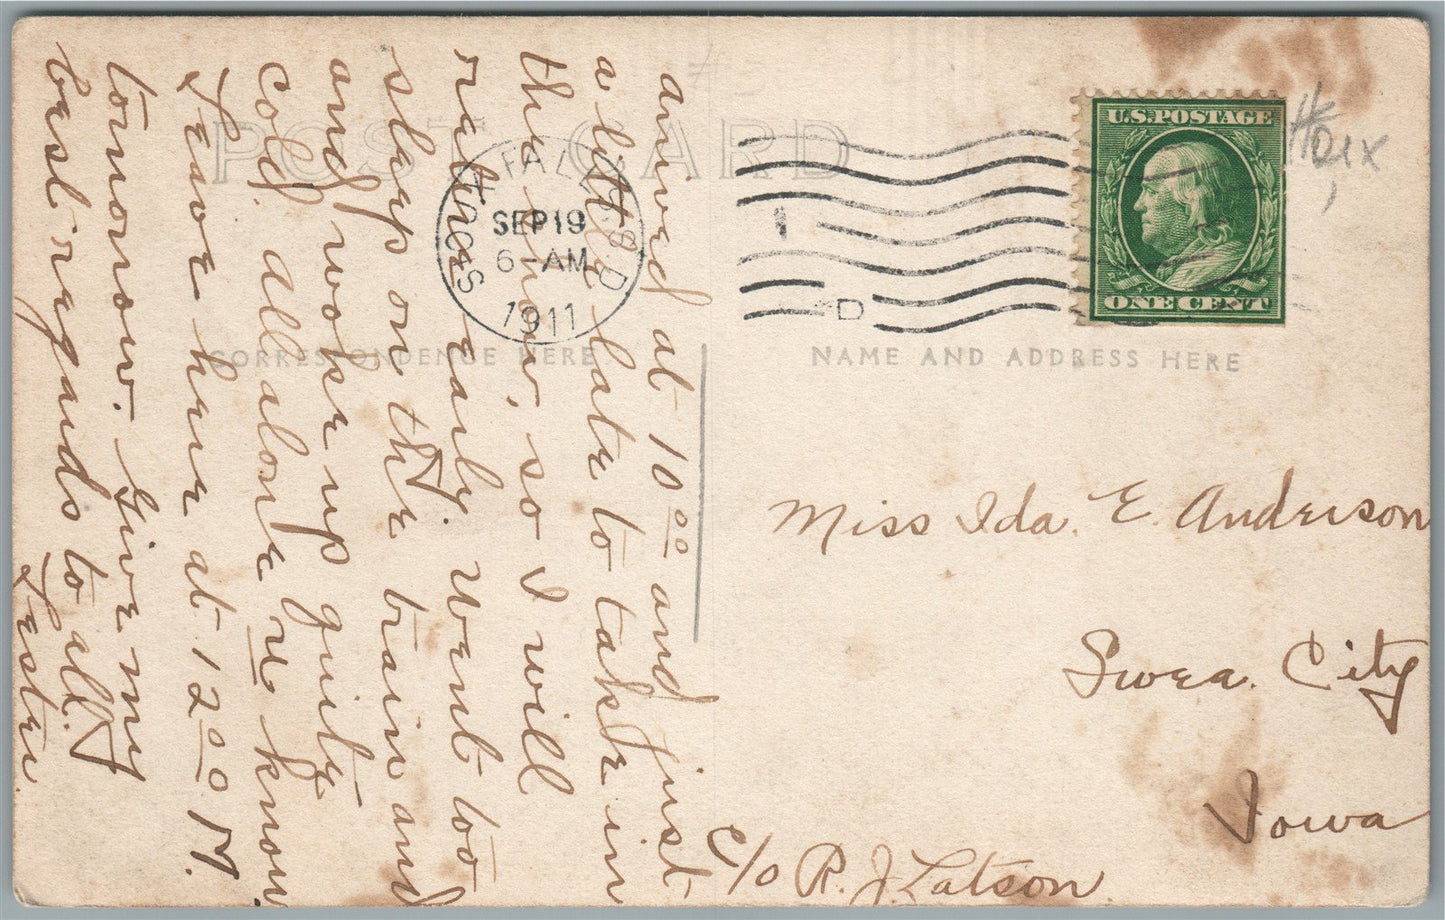 POST CARD
CORRESPONDENCE HERE
NAME AND ADDRESS HERE
U.S. POSTAGE
ONE CENT
FALLS S.D
SEP 19
6-AM
1911
arrived at 10 00 and just
a little late to take in
the show, so I will
real early. Went to
sleep on the train and
and woke up quite
cold. all alone u know
Leave here at 12 00 M.
tomorrow. Give my
best regards to all.
Lester.
Miss Ida. E. Anderson
Swea. City
Iowa
C/o R. J. Latson